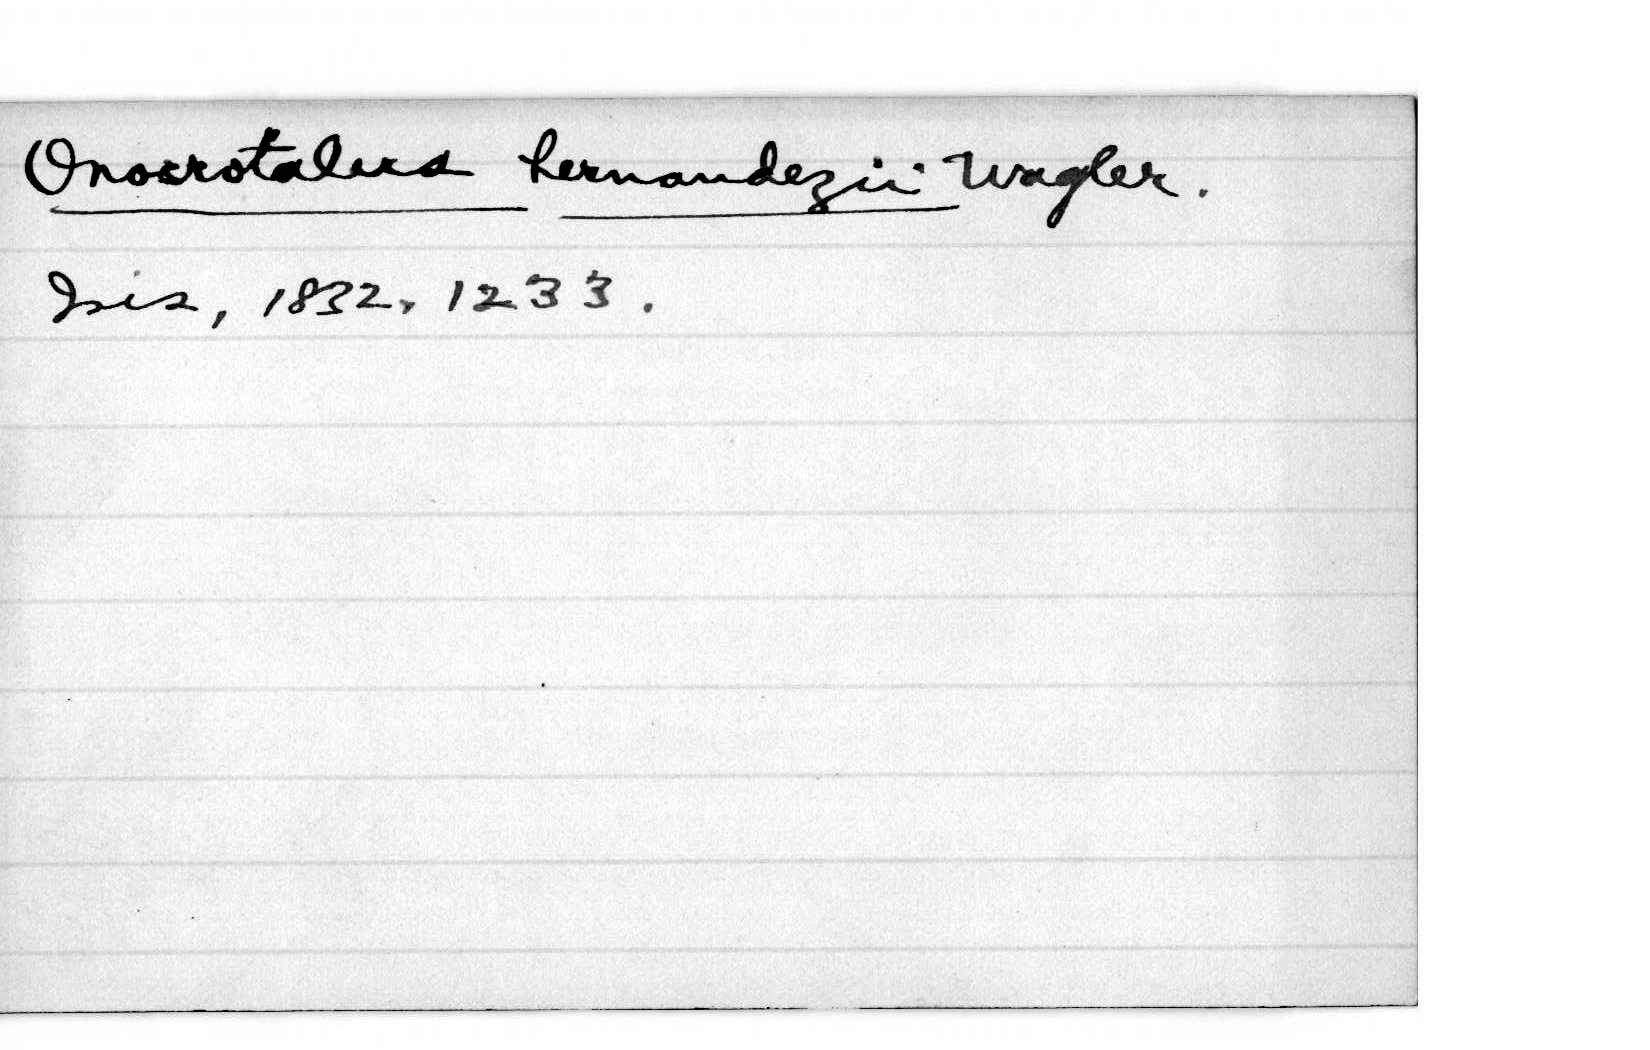 Onocrotalus hernandezii Wagler.
Isis, 1832, 1233.